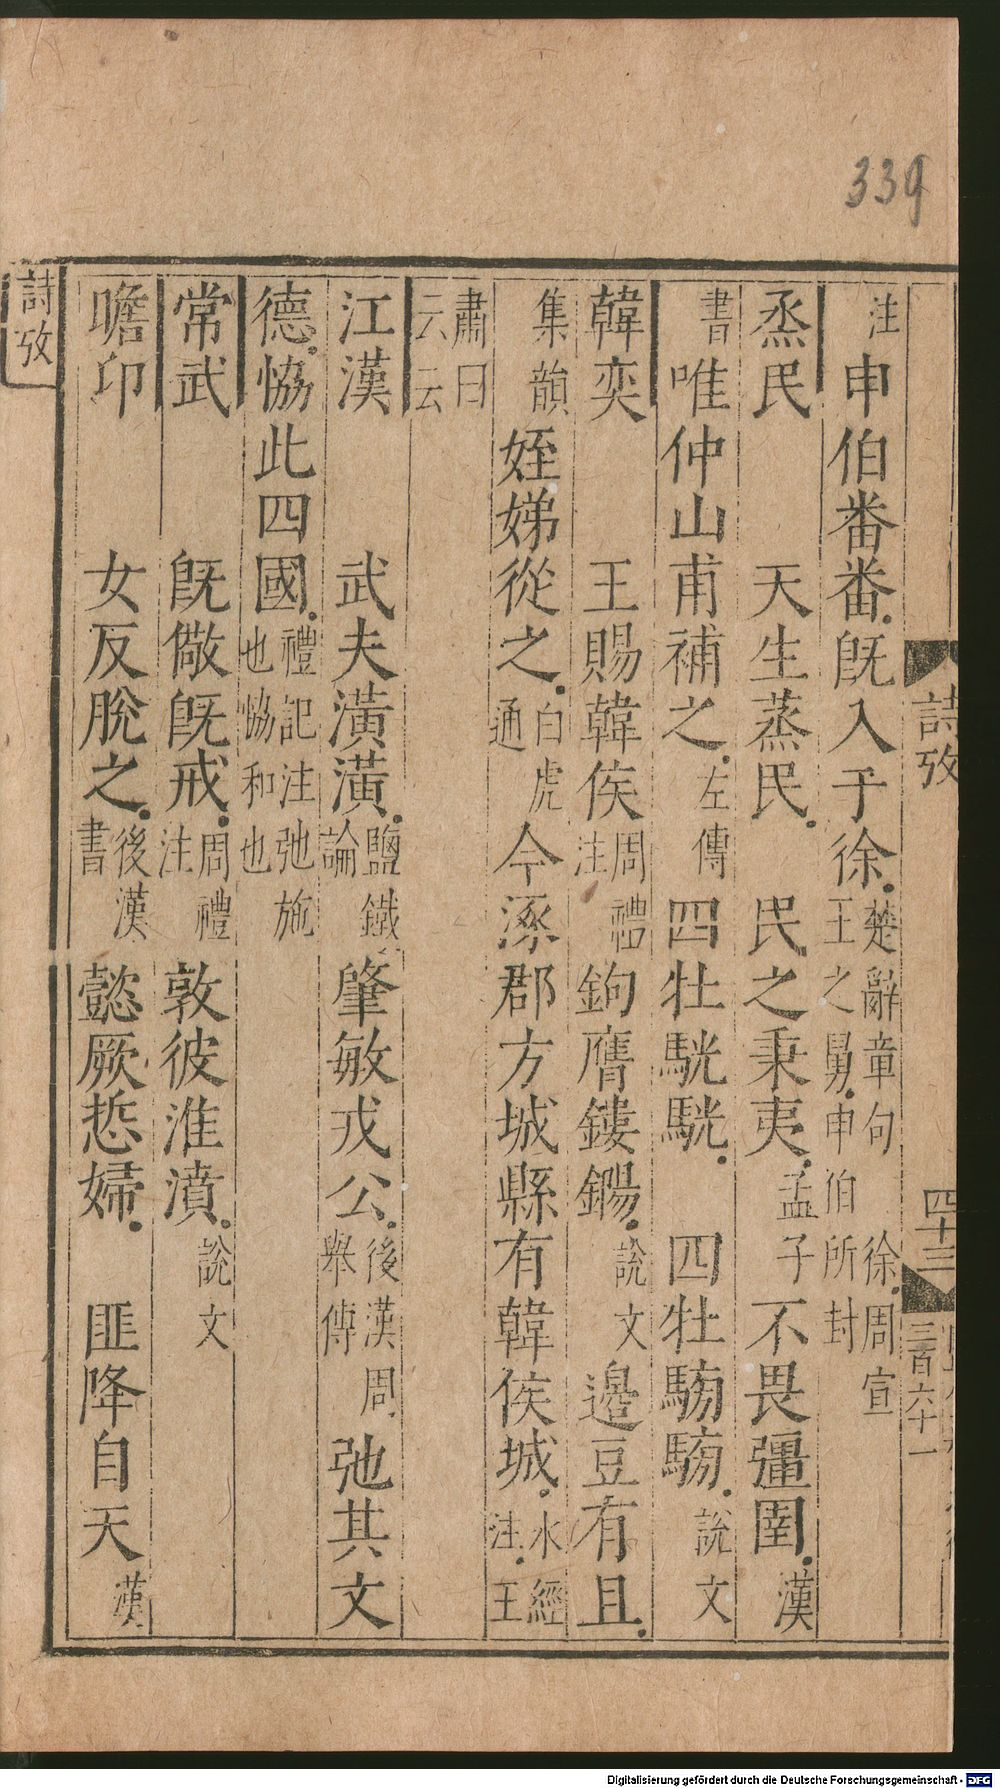 339
注申伯番番旣入于徐楚辭章句徐周宣王之舅申伯所封
烝民　天生蒸民　民之秉夷孟子不畏彊圉漢
書唯仲山甫補之左傳四牡駫駫　四牡騯騯說文
韓奕　王賜韓侯周禮注鉤膺鏤鍚說文邊豆有且
集韻姪娣從之白虎通今涿郡方城縣有韓侯城水經注王
肅曰云云
江漢　武夫潢潢鹽鐵論肇敏戎公後漢周舉傳弛其文
德恊此四國禮記注弛施也恊和也
常武　旣儆旣戒周禮注敦彼淮濆說文
瞻卬　女反脫之後漢書懿厥悊婦　匪降自天漢
詩攷
詩攷
四十三
三百六十一
Digitalisierung gefördert durch die Deutsche Forschungsgemeinschaft - DFG